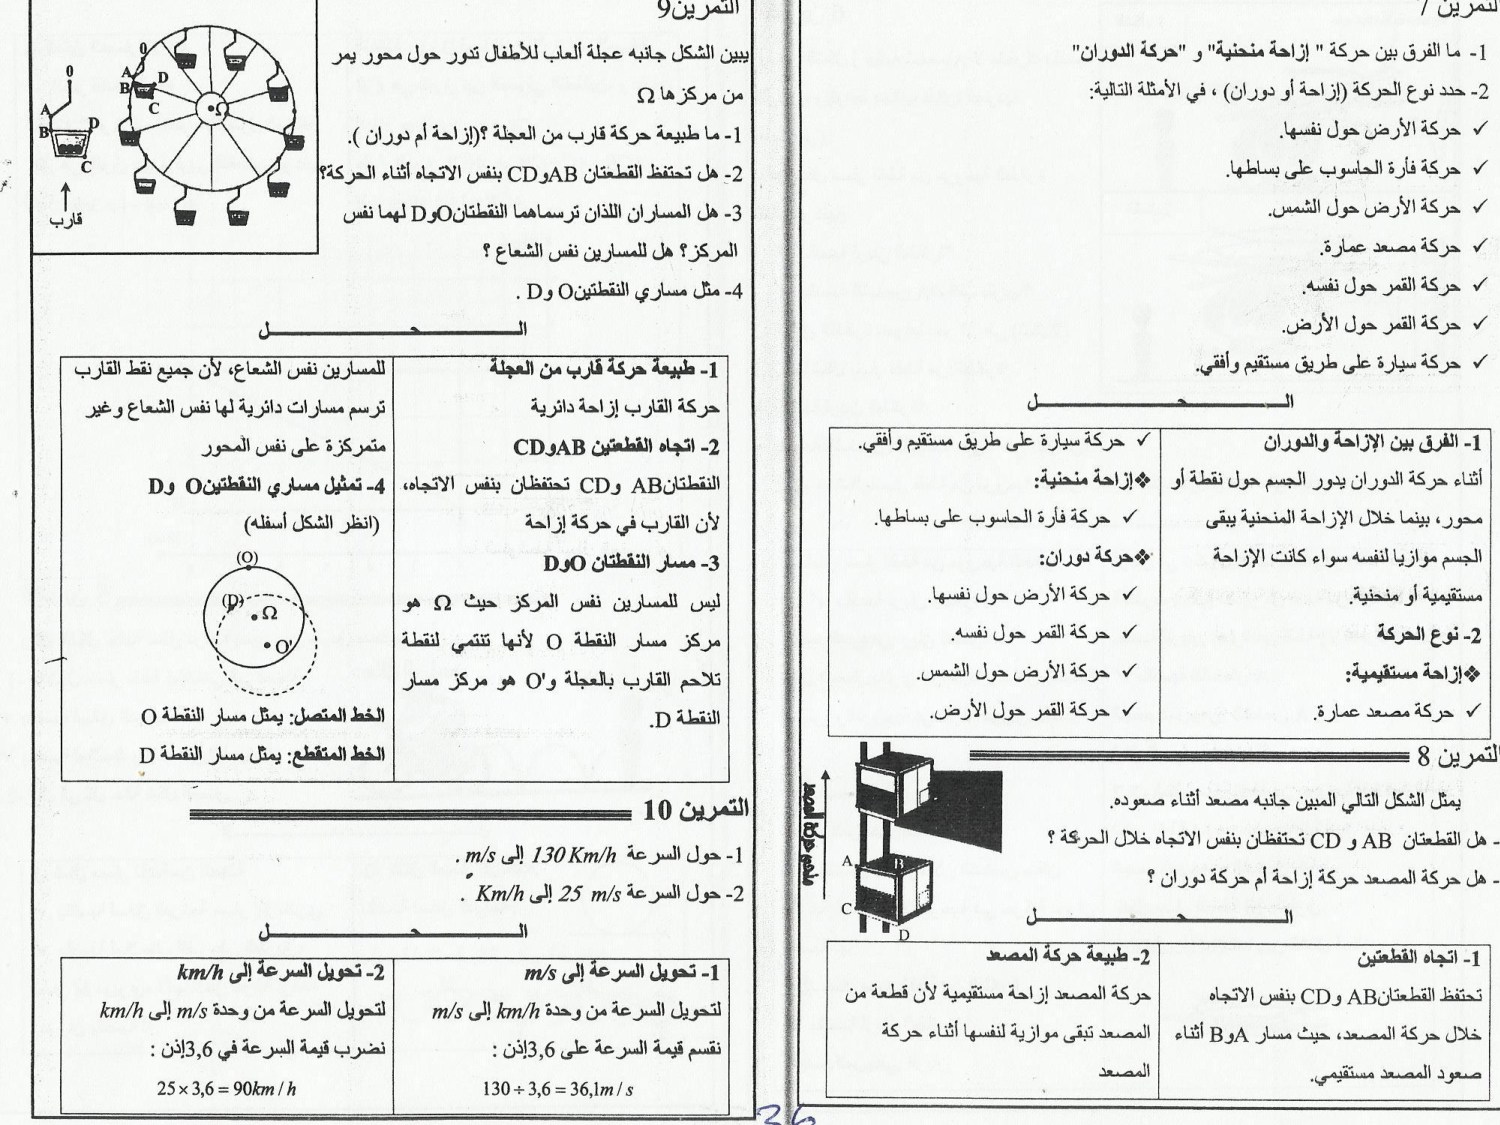 التمرين 7
1- ما الفرق بين حركة " إزاحة منحنية" و "حركة الدوران"
2- حدد نوع الحركة (إزاحة أو دوران) ، في الأمثلة التالية:
✓ حركة الأرض حول نفسها.
✓ حركة فأرة الحاسوب على بساطها.
✓ حركة الأرض حول الشمس.
✓ حركة مصعد عمارة.
✓ حركة القمر حول نفسه.
✓ حركة القمر حول الأرض.
✓ حركة سيارة على طريق مستقيم وأفقي.
الـحـل
1- الفرق بين الإزاحة والدوران
أثناء حركة الدوران يدور الجسم حول نقطة أو
محور، بينما خلال الإزاحة المنحنية يبقى
الجسم موازيا لنفسه سواء كانت الإزاحة
مستقيمية أو منحنية.
2- نوع الحركة
❖إزاحة مستقيمية:
✓ حركة مصعد عمارة.
✓ حركة سيارة على طريق مستقيم وأفقي.
❖إزاحة منحنية:
✓ حركة فأرة الحاسوب على بساطها.
❖حركة دوران:
✓ حركة الأرض حول نفسها.
✓ حركة القمر حول نفسه.
✓ حركة الأرض حول الشمس.
✓ حركة القمر حول الأرض.
التمرين 8
يمثل الشكل التالي المبين جانبه مصعد أثناء صعوده.
- هل القطعتان AB و CD تحتفظان بنفس الاتجاه خلال الحركة ؟
- هل حركة المصعد حركة إزاحة أم حركة دوران ؟
منحى حركة المصعد
A
B
C
D
الـحـل
1- اتجاه القطعتين
تحتفظ القطعتانAB وCD بنفس الاتجاه
خلال حركة المصعد، حيث مسار AوB أثناء
صعود المصعد مستقيمي.
2- طبيعة حركة المصعد
حركة المصعد إزاحة مستقيمية لأن قطعة من
المصعد تبقى موازية لنفسها أثناء حركة
المصعد
التمرين9
يبين الشكل جانبه عجلة ألعاب للأطفال تدور حول محور يمر
من مركزها Ω
1- ما طبيعة حركة قارب من العجلة ؟(إزاحة أم دوران ).
2- هل تحتفظ القطعتان ABوCD بنفس الاتجاه أثناء الحركة؟
3- هل المساران اللذان ترسماهما النقطتانOوD لهما نفس
المركز؟ هل للمسارين نفس الشعاع ؟
4- مثل مساري النقطتينO وD .
0
A
B
D
C
قارب
0
A
B
D
C
Ω
الـحـل
1- طبيعة حركة قارب من العجلة
حركة القارب إزاحة دائرية
2- اتجاه القطعتين ABوCD
النقطتانAB وCD تحتفظان بنفس الاتجاه،
لأن القارب في حركة إزاحة
3- مسار النقطتان OوD
ليس للمسارين نفس المركز حيث Ω هو
مركز مسار النقطة O لأنها تنتمي لنقطة
تلاحم القارب بالعجلة و'O هو مركز مسار
النقطة D.
للمسارين نفس الشعاع، لأن جميع نقط القارب
ترسم مسارات دائرية لها نفس الشعاع وغير
متمركزة على نفس المحور
4- تمثيل مساري النقطتينO وD
(انظر الشكل أسفله)
(O)
(D)
Ω
O'
الخط المتصل: يمثل مسار النقطة O
الخط المتقطع: يمثل مسار النقطة D
التمرين 10
1- حول السرعة 130 Km/h إلى m/s .
2- حول السرعة 25 m/s إلى Km/h .
الـحـل
1- تحويل السرعة إلى m/s
لتحويل السرعة من وحدة km/h إلى m/s
نقسم قيمة السرعة على 3,6إذن :
130 ÷ 3,6 = 36,1m / s
2- تحويل السرعة إلى km/h
لتحويل السرعة من وحدة m/s إلى km/h
نضرب قيمة السرعة في 3,6إذن :
25 × 3,6 = 90km / h
36